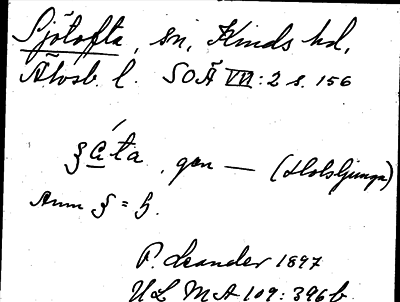 Sjötofta, sn, Kinds hd,
Älvsb. l. SOÄ VII:2 s. 156
ʒáta, gen — (Holsljunga)
Anm ʒ = h.
P. Leander 1897
ULMA 109:396 b.